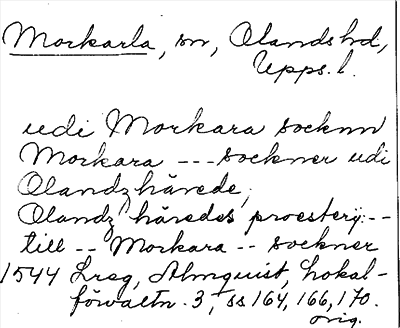 Morkarla, sn, Olands hd,
Upps. l.
udi Morkara socknn
Morkara --- sockner udi
Olandz härede,
Olandz häredes proesterij --
till -- Morkara -- sockner
1544 Lreg, Almquist, Lokal-
förvaltn. 3, ss 164, 166, 170.
orig.